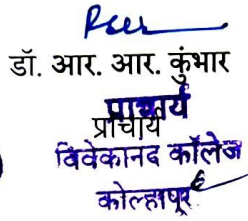 डॉ. आर. आर. कुंभार
प्राचार्य
प्राचार्य
विवेकानंद कॉलेज
कोल्हापूर